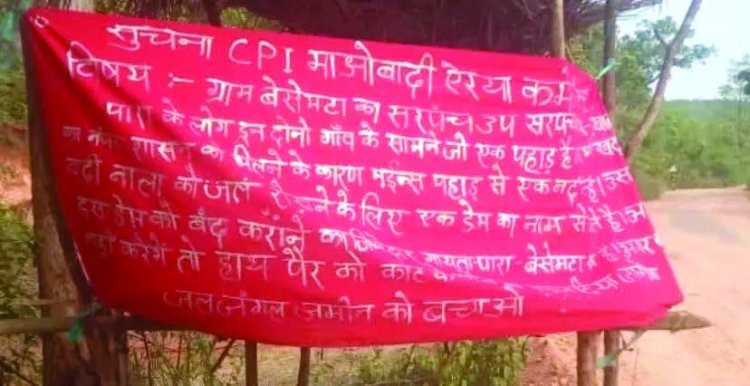 सुचना CPI माओवादी ऐरया कमे
विषय :- ग्राम बेसेमटा का सरपंच उप सरपंच
पारा के लोग इन दोनो गाँव के सामने जो एक पहाड़ है।
का शासन का मिलने के कारण मईन्स पहाड़ से एक नदी है। उस
नदी नाला को जल रोकने के लिए एक डेम का नाम सेते है।
इस डेम को बंद कराने का गायतापारा - बेसेमटा
नहीं करेगें तो हाथ पैर को काट
जल जंगल जमीन को बचाओ